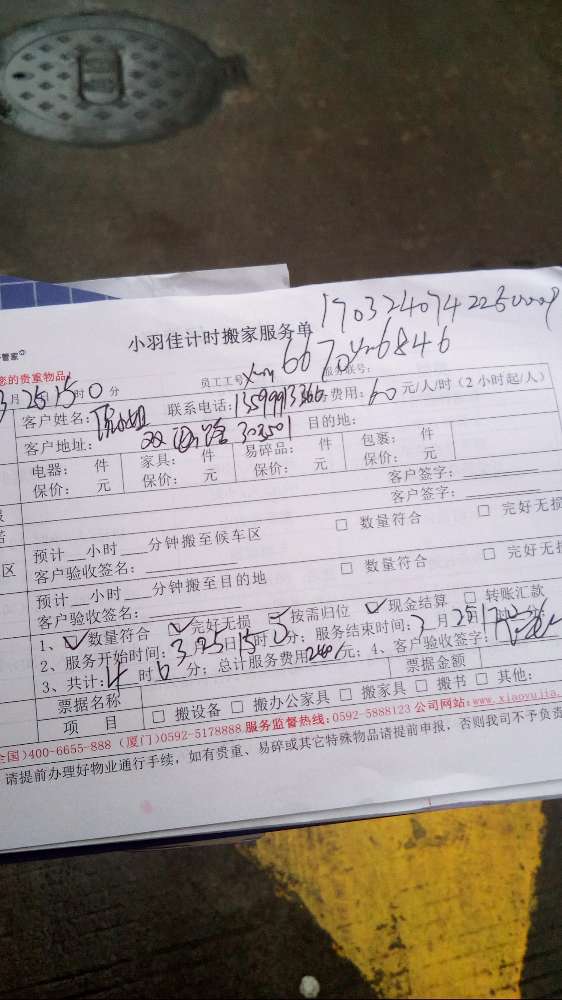 170324074225
小羽佳计时搬家服务单
管家
您的贵重物品！
员工工号 667 6846 服务联号：
3月25日15时0分
客户姓名： 小姐 联系电话： 费用：60元/人/时（2小时起/人）
客户地址： 303501 目的地：
电器： 件 家具： 件 易碎品： 件 包裹： 件
保价： 元 保价： 元 保价： 元 保价： 元
客户签字：
客户签字：
预计 小时 分钟搬至候车区 □ 数量符合 □ 完好无损
区 客户验收签名：
预计 小时 分钟搬至目的地 □ 数量符合 □ 完好无损
客户验收签名：
1、☑数量符合 ☑完好无损 ☑按需归位 ☑现金结算 □ 转账汇款
2、服务开始时间：3月25日15时0分；服务结束时间：3月25日17
3、共计：4时0分；总计服务费用240元；4、客户签字：
票据名称 票据金额
项 目 □ 搬设备 □ 搬办公家具 □ 搬家具 □ 搬书 □ 其他：
全国)400-6655-888 (厦门)0592-5178888 服务监督热线:0592-5888123 公司网站:www.xiaoyujia.
请提前办理好物业通行手续，如有贵重、易碎或其它特殊物品请提前申报，否则我司不予负责